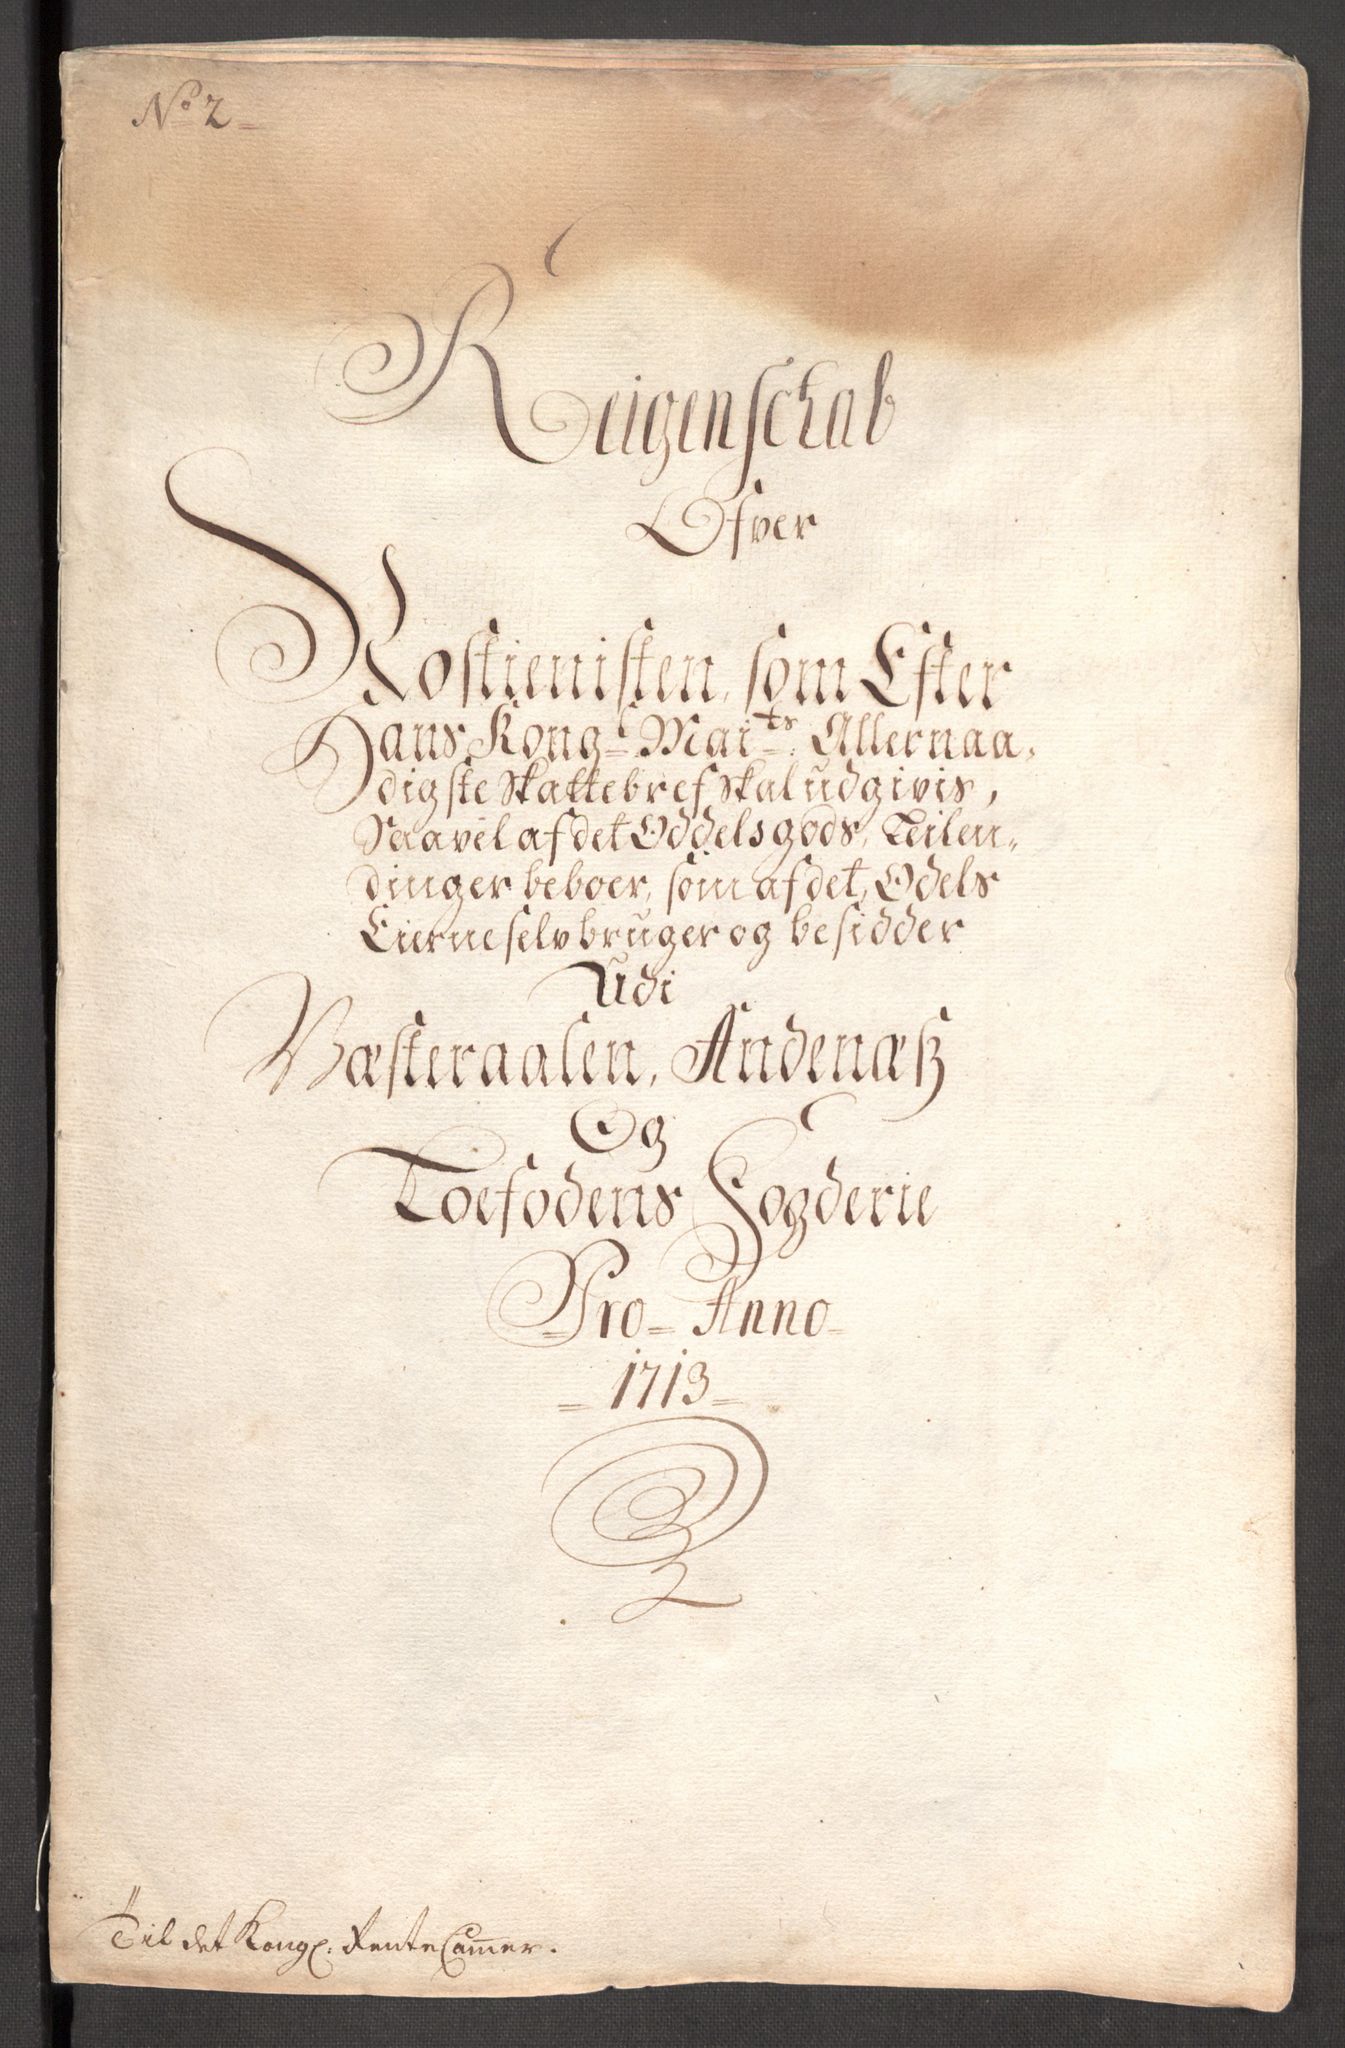 No 2
Reigenschab
Ofver
Rostienisten, som Efter
Hans Kongl Maits: Allernaa,
digste Skattebref skal udgivis,
Saavel af det Oddelsgods, Leilen,,
dinger beboer, som af det, Odels
Eierne selv bruger og besidder
Udi
Væsteraalen, Andenæß
Og
Tofodens Fogderie
Pro Anno
1713
Til det Kongl: Rente Camer.